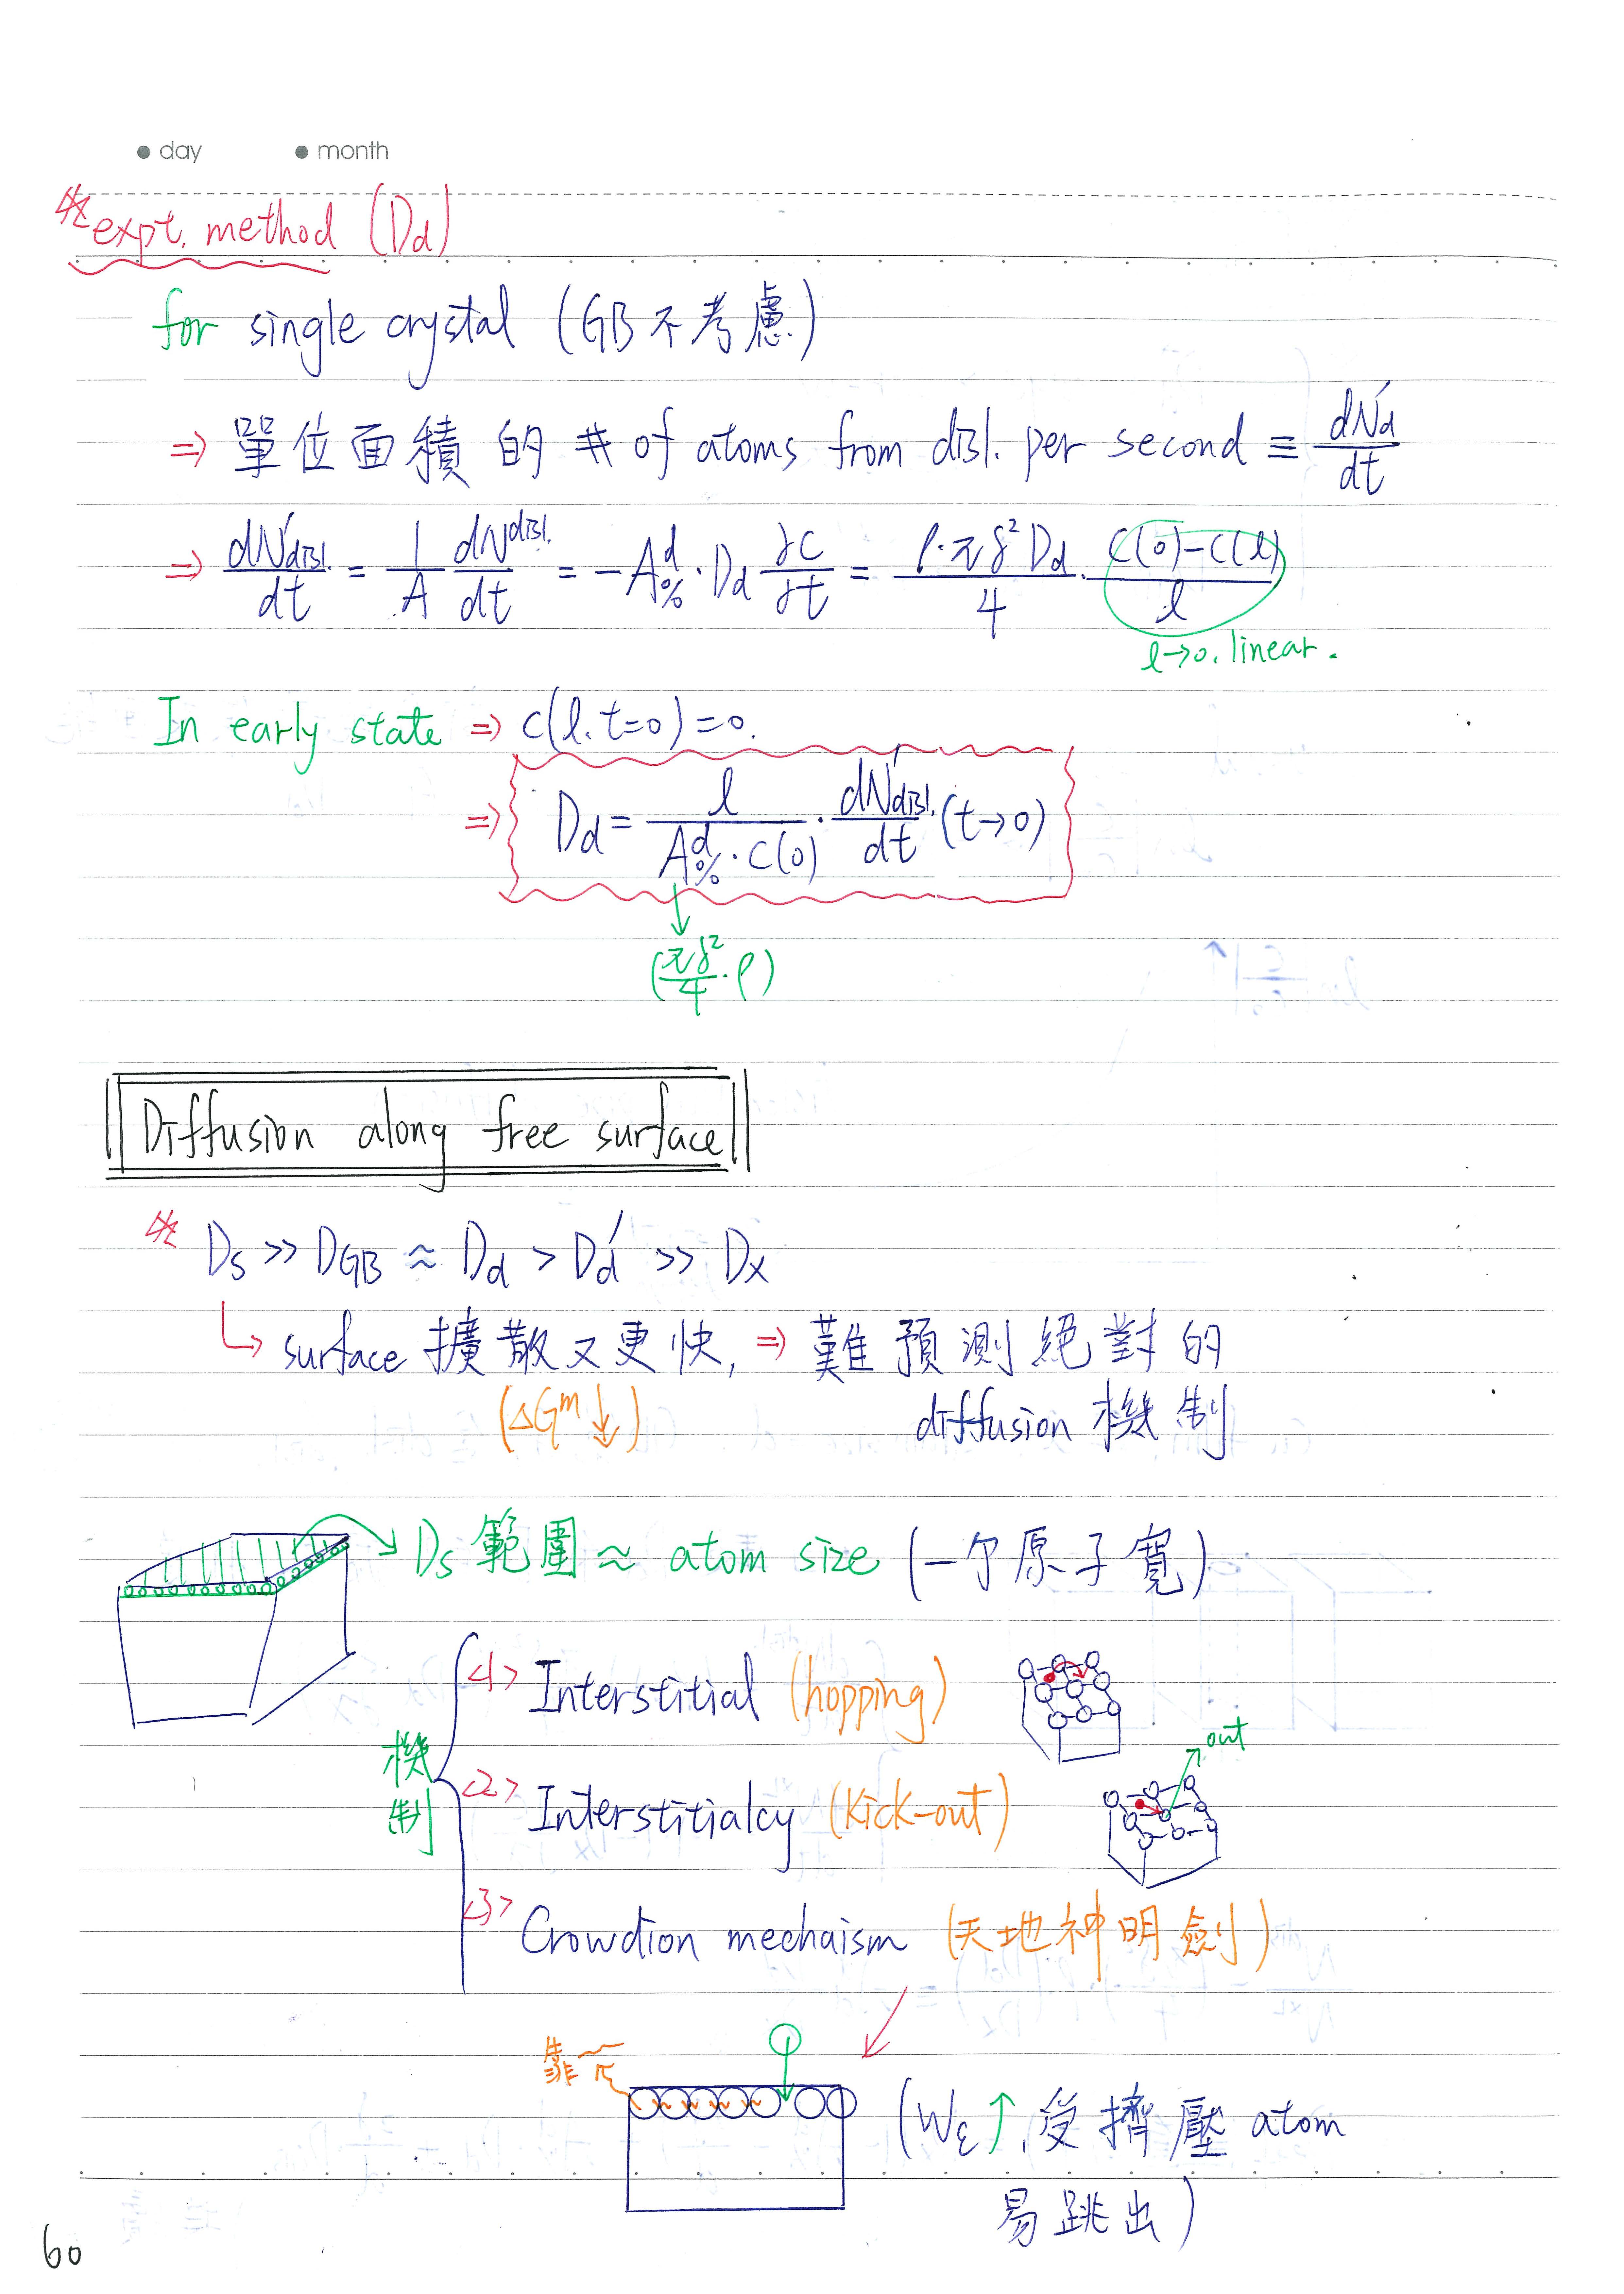 ● day ● month
※ expt. method (Dd)
for single crystal (GB 不考慮)
⇒ 單位面積的 # of atoms from disl. per second ≡ dN'd/dt
⇒ dN'disl./dt = 1/A dN^disl./dt = -A^d_% · Dd ∂C/∂t = ρ·πδ² Dd/4 · C(0)-C(l)/l
l→0. linear.
In early state ⇒ C(l. t=0)=0.
⇒ Dd = l/A^d_%·C(0) · dN'disl./dt (t→0)
(πδ²/4·ρ)
Diffusion along free surface
※ Ds >> DGB ≈ Dd > Dd' >> Dx
↳ surface 擴散又更快, ⇒ 難預測絕對的
(ΔG^m ↓) diffusion 機制
Ds 範圍 ≈ atom size (一个原子寬)
機制
<1> Interstitial (hopping)
out
<2> Interstitialcy (kick-out)
<3> Crowdion mechaism (天地神明劍)
靠
(Wε↑, 受擠壓 atom
易跳出)
60